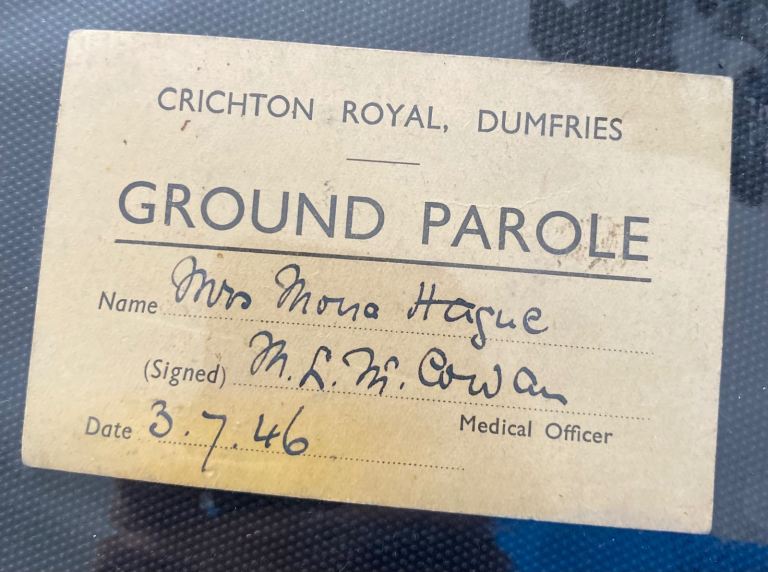 CRICHTON ROYAL, DUMFRIES
GROUND PAROLE
Name Mrs Mona Hague
(Signed) M. L. M. Cowan
Medical Officer
Date 3.7.46